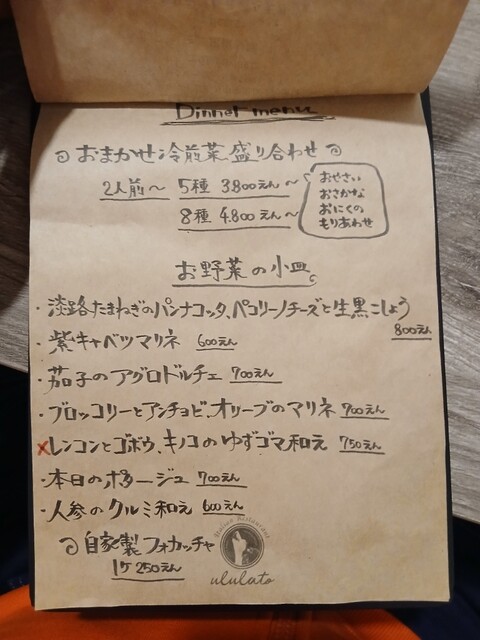 Dinner menu
おまかせ冷前菜盛り合わせ
2人前〜 5種 3.800えん〜
8種 4.800えん〜
おやさい
おさかな
おにくの
もりあわせ
お野菜の小皿。
・淡路たまねぎのパンナコッタ、ペコリーノチーズと生黒こしょう
800えん
・紫キャベツマリネ 600えん
・茄子のアグロドルチェ 700えん
・ブロッコリーとアンチョビ、オリーブのマリネ 700えん
×レンコンとゴボウ、キノコのゆずゴマ和え 750えん
・本日のポタージュ 700えん
・人参のクルミ和え 600えん
自家製フォカッチャ
1ケ 250えん
Italian Restaurant
ululato